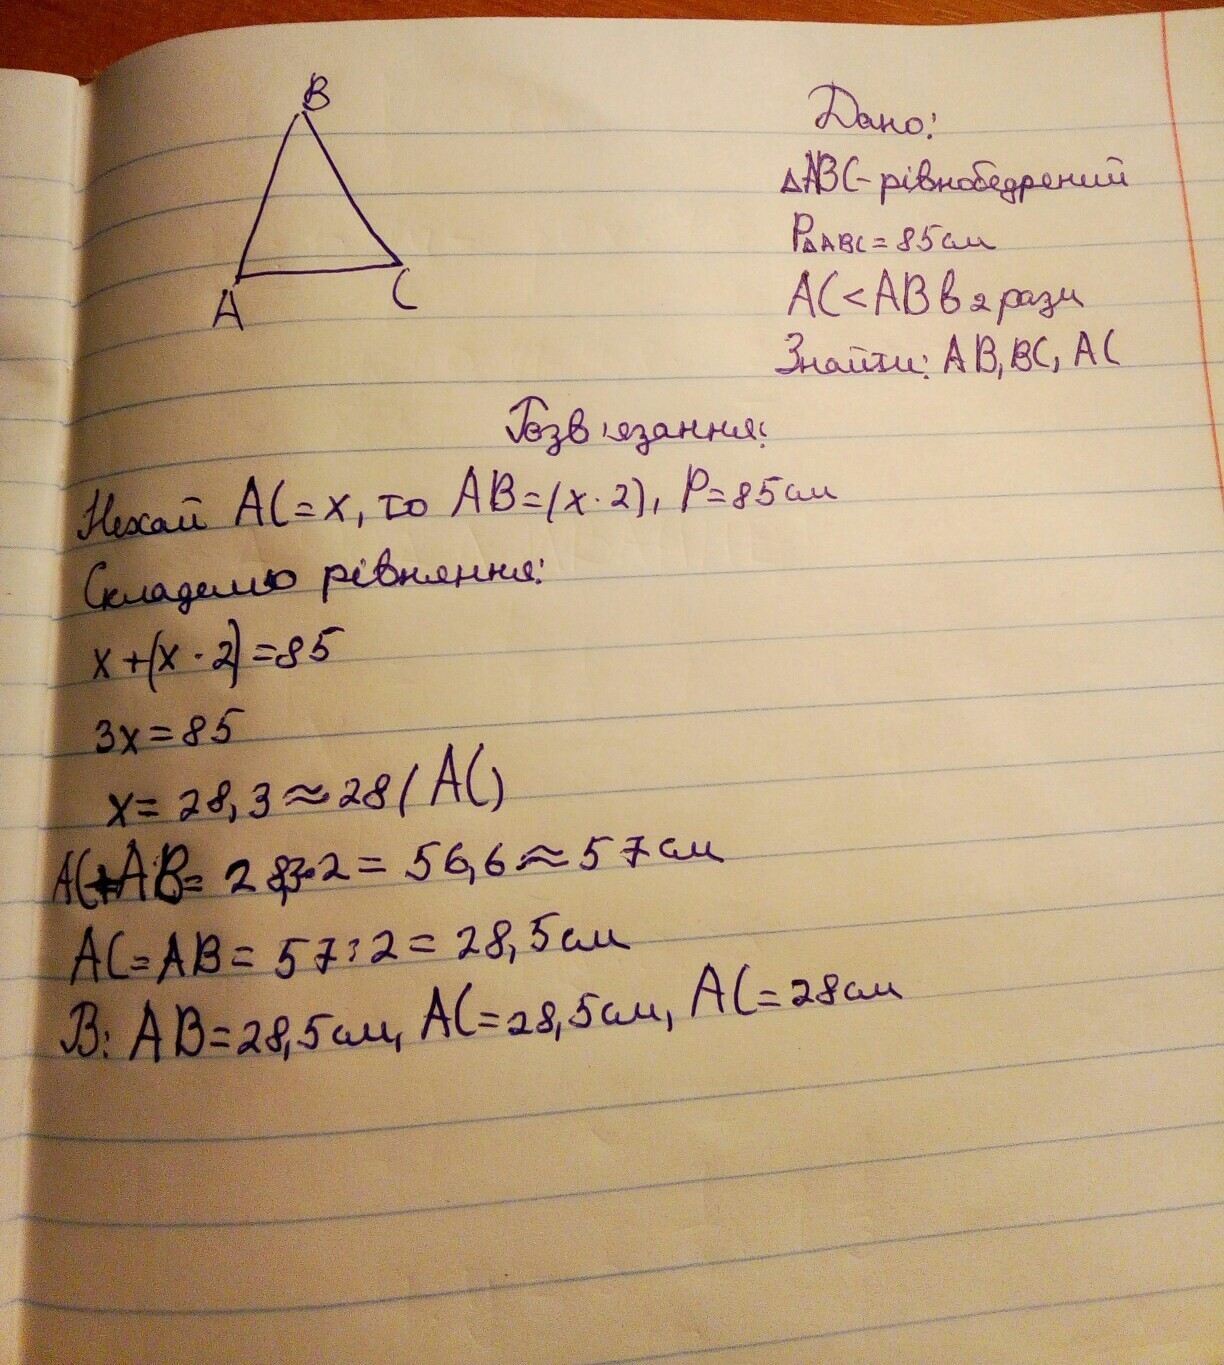 B
A
C
Дано:
△ABC - рівнобедрений
P△ABC = 85 см
AC < AB в 2 рази
Знайти: AB, BC, AC
Розв'язання:
Нехай AC = x, то AB = (x · 2), P = 85 см
Складемо рівняння:
x + (x · 2) = 85
3x = 85
x = 28,3 ≈ 28 (AC)
AC + AB = 28,3 · 2 = 56,6 ≈ 57 см
AC = AB = 57 : 2 = 28,5 см
В: AB = 28,5 см, AC = 28,5 см, AC = 28 см